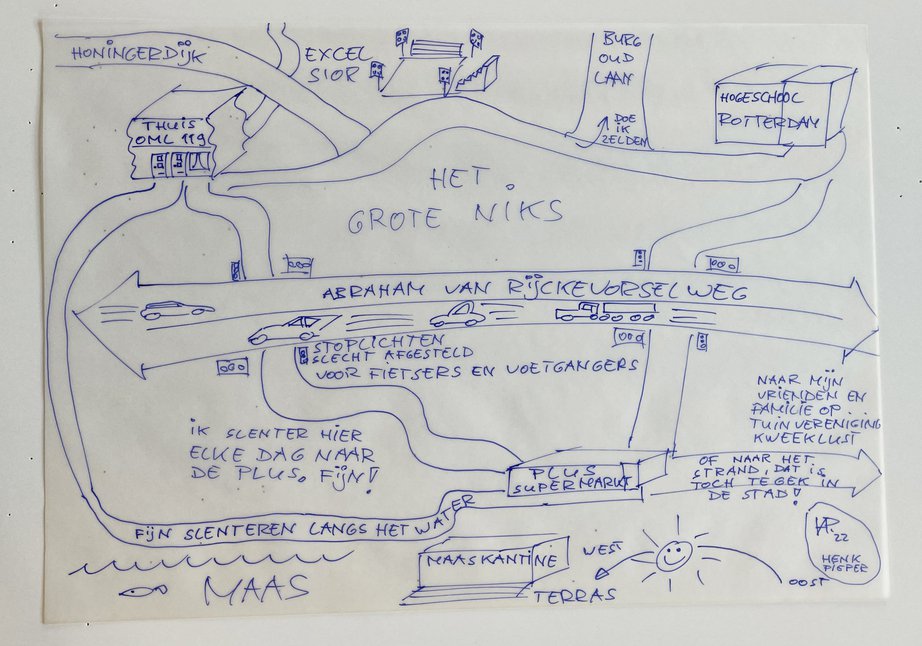 HONINGERDIJK
EXCEL
SIOR
BURG
OUD
LAAN
DOE
IK
ZELDEN
HOGESCHOOL
ROTTERDAM
THUIS
OML 119
HET
GROTE NIKS
ABRAHAM VAN RIJCKEVORSELWEG
STOPLICHTEN
SLECHT AFGESTELD
VOOR FIETSERS EN VOETGANGERS
NAAR MIJN
VRIENDEN EN
FAMILIE OP
TUINVERENIGING
KWEEKLUST
IK SLENTER HIER
ELKE DAG NAAR
DE PLUS. FIJN!
PLUS
SUPERMARKT
OF NAAR HET
STRAND, DAT IS
TOCH TE GEK IN
DE STAD!
FIJN SLENTEREN LANGS HET WATER
MAASKANTINE
WEST
OOST
TERRAS
MAAS
HP. 22
HENK
PIEPER